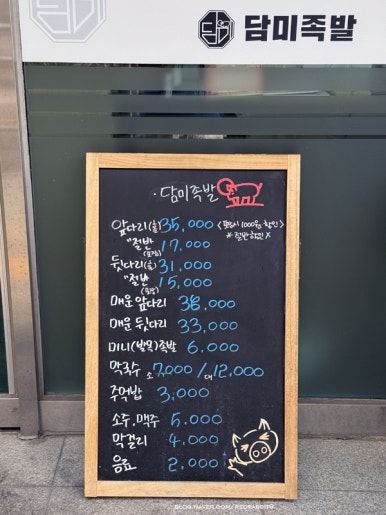 담미족발
담미족발
앞다리(출) 35,000 <포장시 1000원 할인>
"절반 17,000 * 절반 할인 X
(포장)
뒷다리(출) 31,000
"절반 15,000
(포장)
매운 앞다리 38,000
매운 뒷다리 33,000
미니(발목)족발 6,000
막국수 소 7,000 / 대 12,000
주먹밥 3,000
소주, 맥주 5,000
막걸리 4,000
음료 2,000